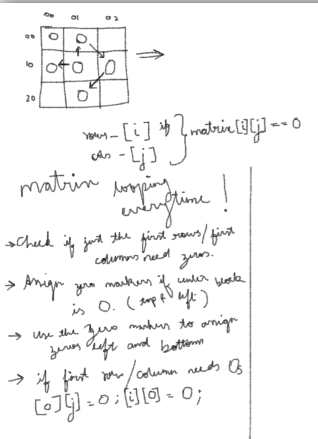 00 01 02
00 0 0
10 0 0 0
20 0
rows - [i] if } matrix[i][j] == 0
cols - [j]
matrix looping
everytime !
→ Check if just the first rows/first
columns need zeros.
→ Assign zero markers if center block
is 0. (top & left)
→ use the zero markers to assign
zeros left and bottom
→ if first row/column needs 0s
[0][j] = 0 ; [i][0] = 0 ;